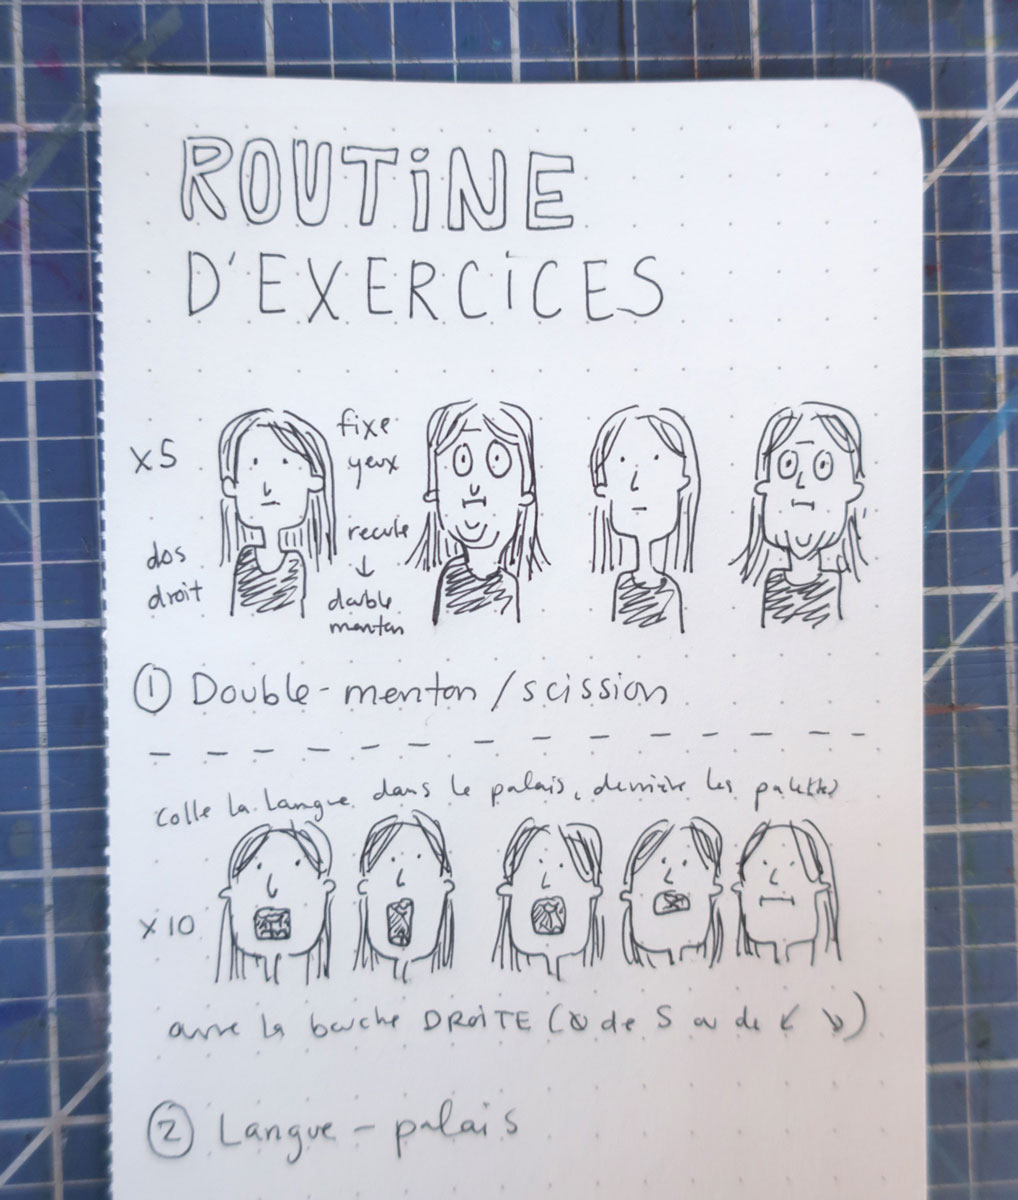 ROUTINE
D'EXERCICES
x5
dos
droit
fixe
yeux
recule
↓
double
menton
① Double-menton / scission
colle la langue dans le palais, derrière les palettes
x10
ouvre la bouche DROITE ( de S ou de ↙ ↘)
② Langue - palais